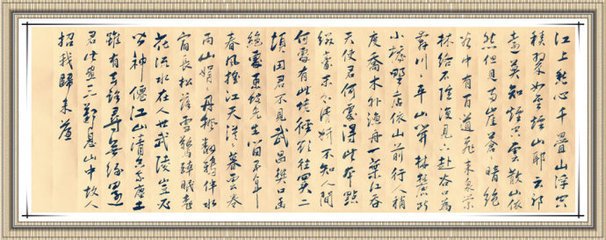 江上愁心千疊山浮空
積翠如雲煙山耶雲耶
遠莫知煙空雲散山依
然但見兩崖蒼蒼暗絕
谷中有百道飛來泉縈
林絡石隱復見下赴谷口為
奔川川平山開林麓斷
小橋野店依山前行人稍
度喬木外漁舟一葉江吞
天使君何處得此本點
綴毫末分清妍不知人間
何處有此境徑欲往買二
頃田君不見武昌樊口幽
絕處東坡先生留五年
春風搖江天漠漠暮雲卷
雨山娟娟丹楓翻鴉伴水
宿長松落雪驚醉眠桃
花流水在人世武陵豈必
皆神仙江山清空我塵土
雖有去路尋無緣還
君此畫三歎息山中故人
招我歸來篇